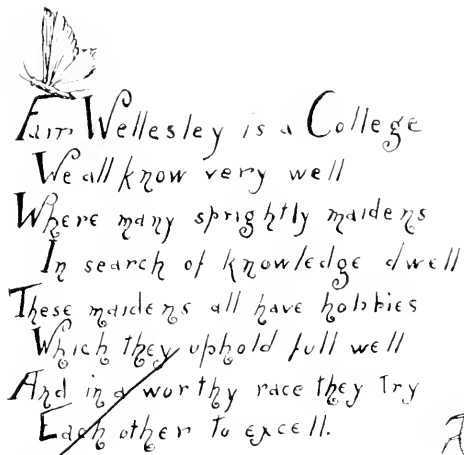 Fair Wellesley is a College
We all know very well
Where many sprightly maidens
In search of knowledge dwell
These maidens all have hobbies
Which they uphold full well
And in a worthy race they try
Each other to excell.